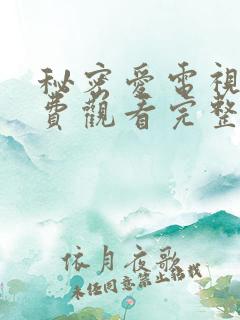 秘密愛電視
費觀看完整
依月夜歌
未经同意禁止转载